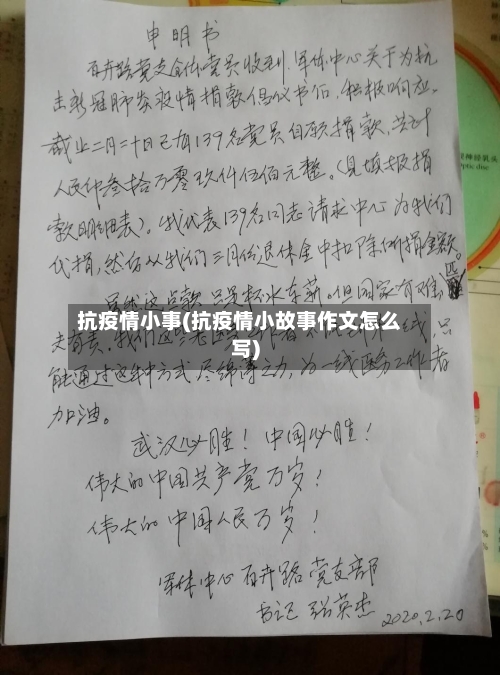 申明书
百卉路党支全体党员收到军休中心关于为抗
击新冠肺炎疫情捐款倡议书后,积极响应。
截止二月二十日已有139名党员自愿捐款,共计
人民币叁拾万零玖仟伍佰元整。(见媴报捐
款明细表)。我代表139名同志请求中心为我们
代捐,然后从我们三月份退休金中扣除所捐金额。
虽然这点款只是杯水车薪。但国家有难匹
夫有责。我们这些老
线,只
能通过这种方式尽绵薄之力,为一线医务工作者
加油。
抗疫情小事(抗疫情小故事作文怎么
写)
武汉必胜!中国必胜!
伟大的中国共产党万岁!
伟大的中国人民万岁!
军休中心百卉路党支部
书记 张英杰 2020.2.20